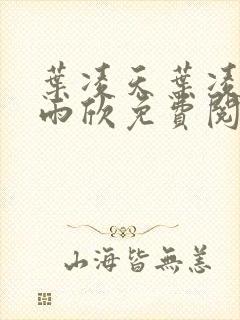 葉凌天葉凌
雨欣免費閱
山海皆無恙